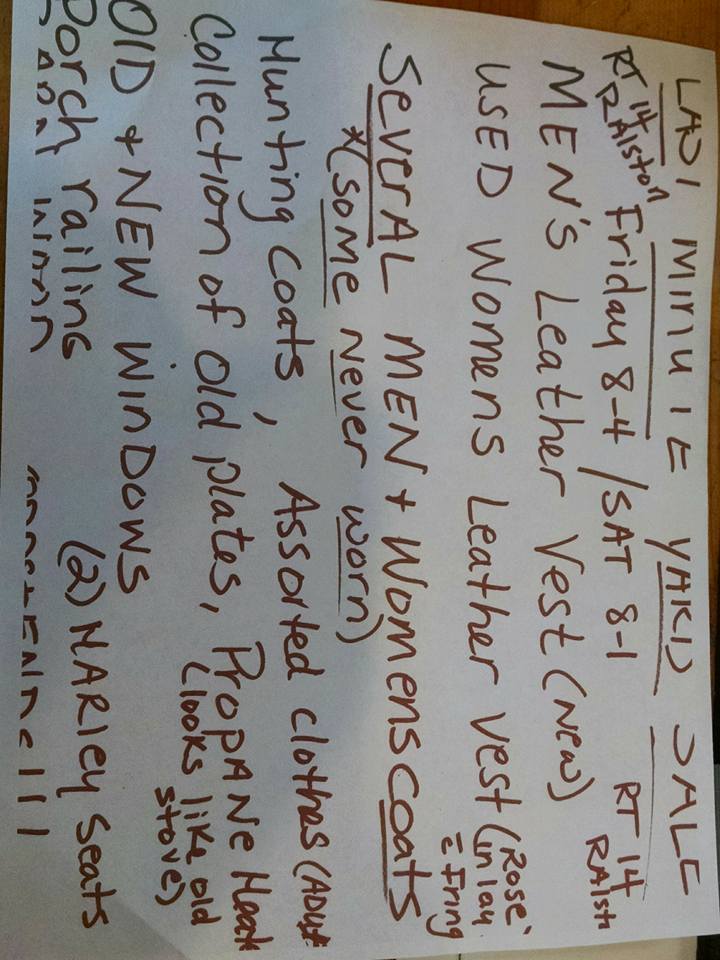 LAST MINUTE YARD SALE
RT 14 Ralston Friday 8-4 / SAT 8-1 RT 14 RAlst
MEN'S Leather Vest (New)
USED Womens Leather Vest (Rose inlay = fring
SeverAL MEN + Womens coats
*(Some never worn)
Hunting Coats, Assorted clothes (ADult
Collection of old plates, PropANe Heat
(looks like old stove)
OlD + NEW WinDOWS
Porch railing (2) HARley Seats